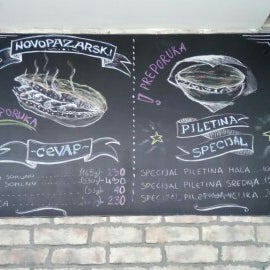 NOVOPAZARSKI
PREPORUKA
CEVAP
SOMUNU 230
SOMUNU
40
230
! PREPORUKA
PILETINA
SPECIJAL
SPECIJAL PILETINA MALA
SPECIJAL PILETINA SREDNJA
SPECIJAL PILETINA VELIKA